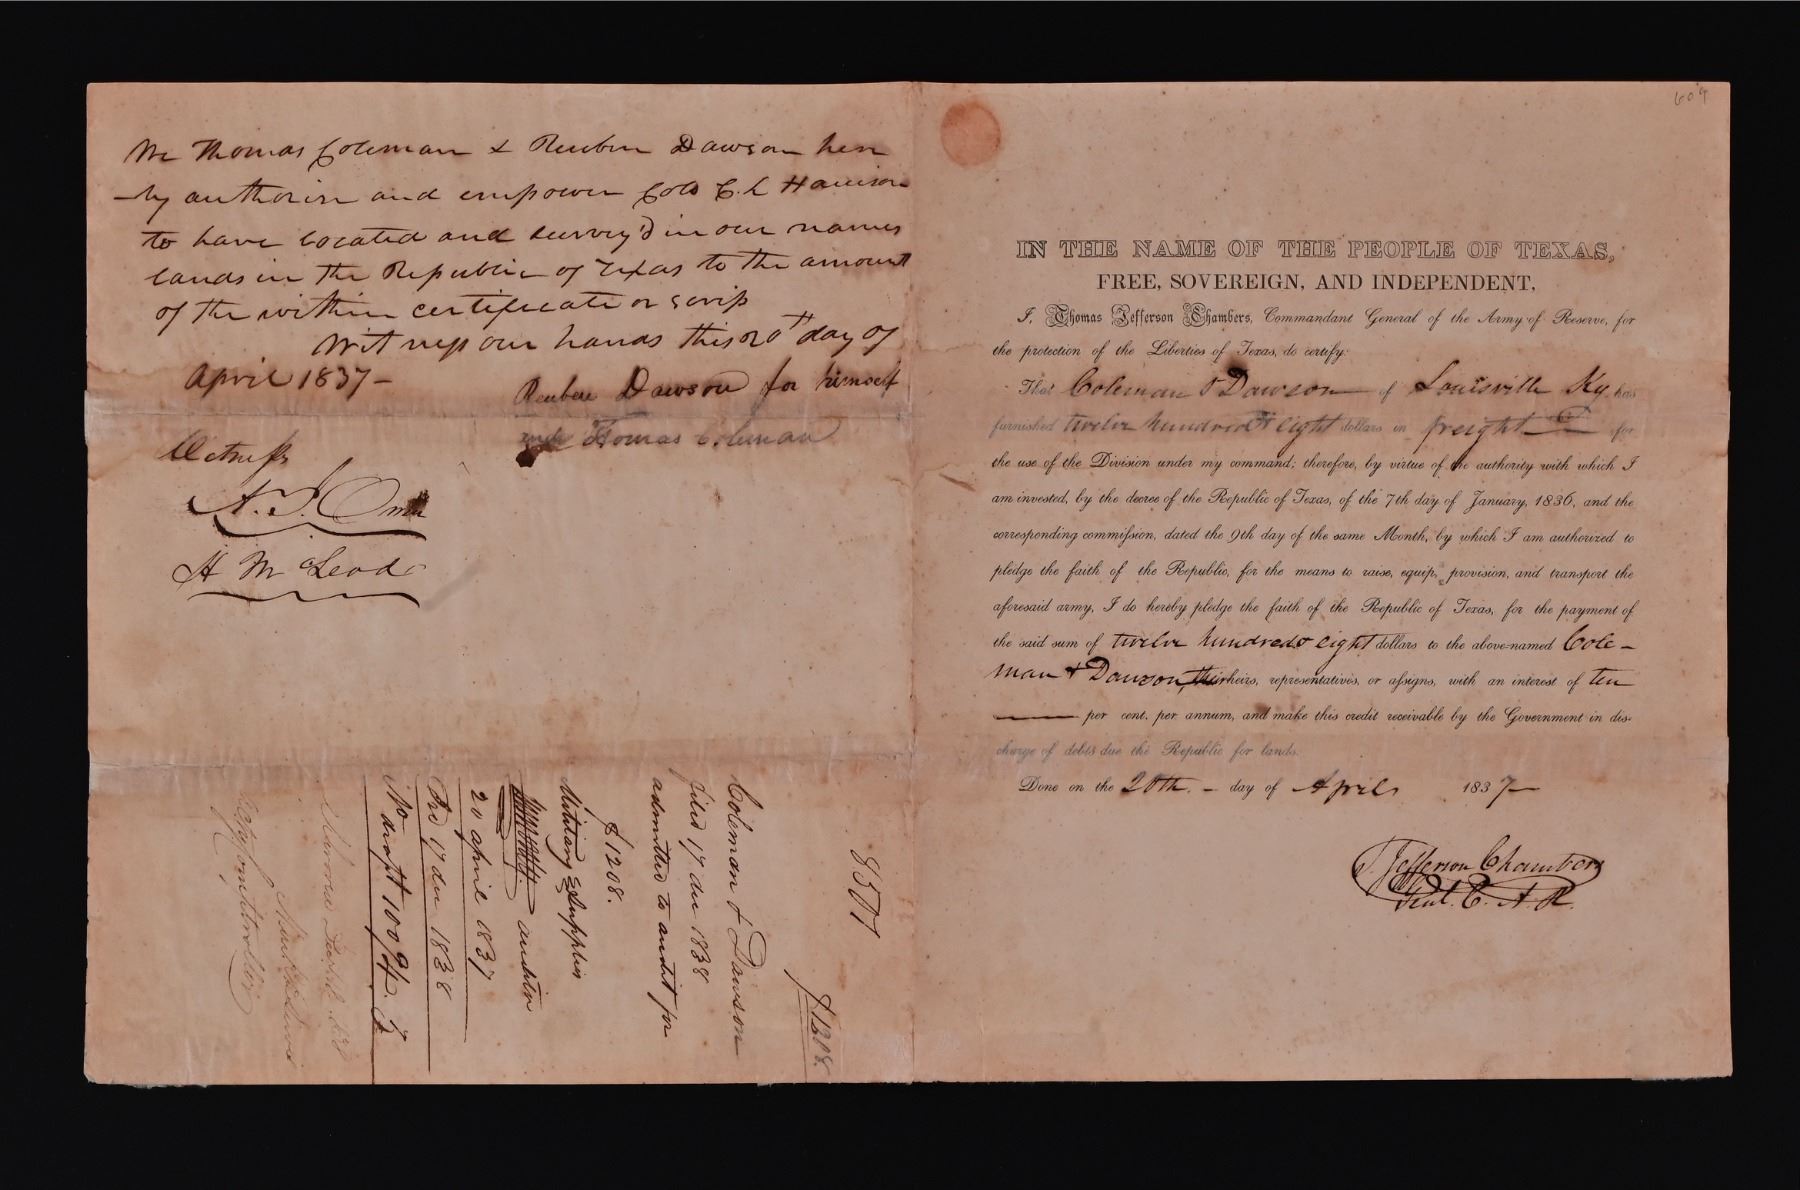 We Thomas Coleman & Reuben Dawson here
-by authorise and empower Colo C. L Harrison
to have located and survey'd in our names
lands in the Republic of Texas to the amount
of the within certificate or scrip
Witness our hands this 20th day of
April 1837-
Reuben Dawson for himself
and Thomas Coleman
Witness
H McLeod
8501
$1208.
Coleman & Dawson
filed 17 dec 1838
admitted to audit for
$1208.
Military Supplies
auditor
20 april 1837
17 dec 1838
No draft 10094.
609
IN THE NAME OF THE PEOPLE OF TEXAS,
FREE, SOVEREIGN, AND INDEPENDENT.
I, Thomas Jefferson Chambers, Commandant General of the Army of Reserve, for
the protection of the Liberties of Texas, do certify:
That Coleman & Dawson of Louisville Ky has
furnished twelve hundred & eight dollars in freight for
the use of the Division under my command; therefore, by virtue of the authority with which I
am invested, by the decree of the Republic of Texas, of the 7th day of January, 1836, and the
corresponding commission, dated the 9th day of the same Month, by which I am authorized to
pledge the faith of the Republic, for the means to raise, equip, provision, and transport the
aforesaid army, I do hereby pledge the faith of the Republic of Texas, for the payment of
the said sum of twelve hundred & eight dollars to the above-named Cole-
man & Dawson, their heirs, representatives, or assigns, with an interest of ten
per cent. per annum, and make this credit receivable by the Government in dis-
charge of debts due the Republic for lands.
Done on the 20th. - day of April 1837-
T. Jefferson Chambers
Genl. C. A. R.